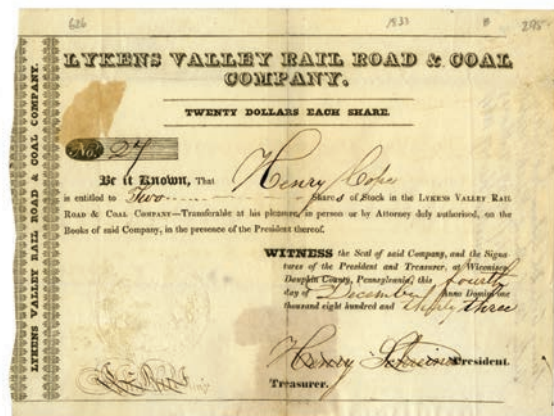 626 1833 B 295-
LYKENS VALLEY RAIL ROAD & COAL
COMPANY.
TWENTY DOLLARS EACH SHARE.
No. 27
Be it Known, That Henry Cope
is entitled to Two Shares of Stock in the LYKENS VALLEY RAIL
ROAD & COAL COMPANY—Transferable at his pleasure, in person or by Attorney duly authorised, on the
Books of said Company, in the presence of the President thereof.
WITNESS the Seal of said Company, and the Signa-
tures of the President and Treasurer, at Wiconisco,
Dauphin County, Pennsylvania, this fourth
day of December Anno Domini one
thousand eight hundred and thirty three
Henry President.
Treasurer.
LYKENS VALLEY RAIL ROAD & COAL COMPANY.